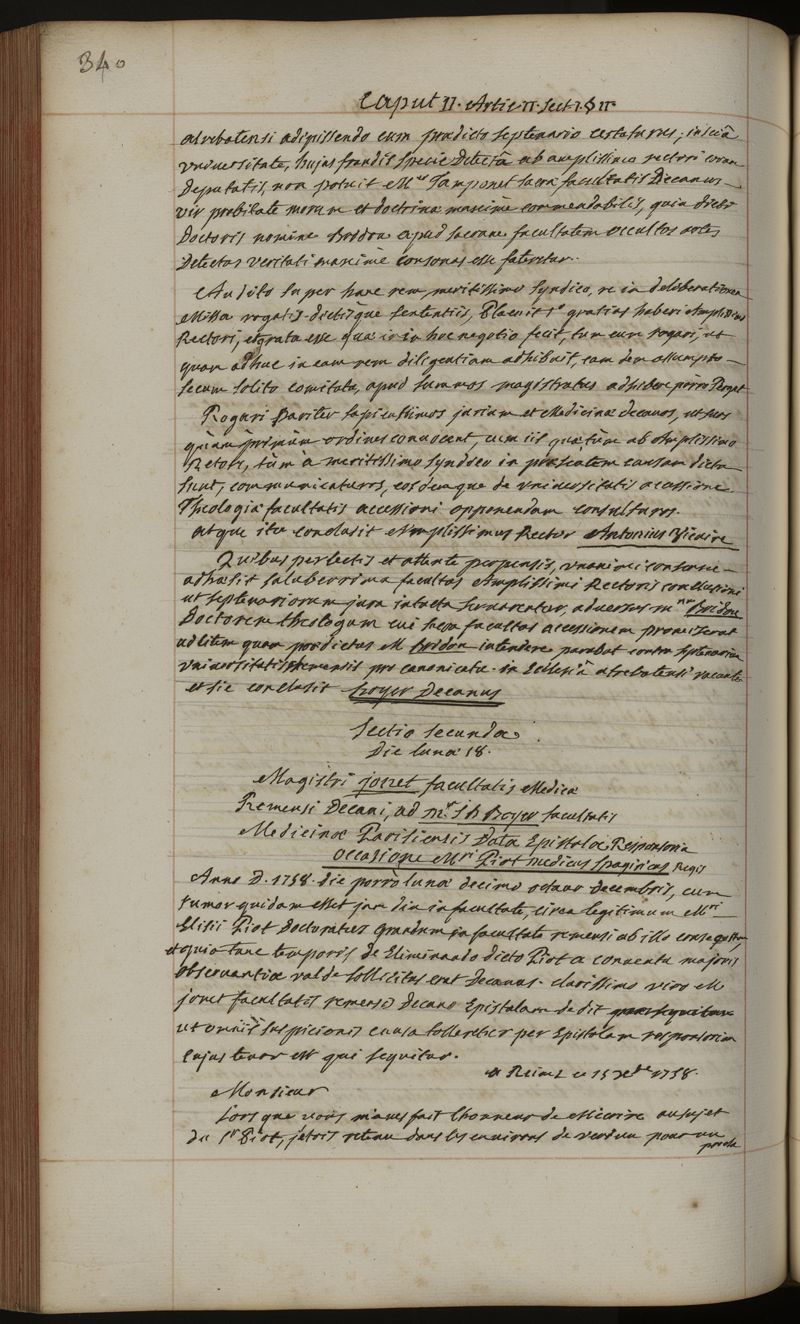 340
Caput II. Artic II. Sect 1. § II
atrebatensi adipissendo cum praedicto septenario certaturus; insciâ
universitate, hujus fraudis specie detectâ ab amplissimo rectori coram
Deputatis, non potuit Mer Tamponet sacra facultatis Decanus
vir probitate morum et doctrina maxime commendabilis, quin dicti
Doctoris nomine Bridou apud sacram facultatem occultas artes
Detectas veritati maximè consonas esse fateretur.
Audito super hanc rem meritissimo syndico, re in deliberationem
Missa rogatis dictisque sententiis, Placuit 1° gratias haberi Amplissimo
Rectori, et grata esse quae is in hoc negotio fecit, tum eum rogari, ut
quam adhuc in eam rem diligentiam adhibuit, eamdem assumpto
secum solito comitatu, apud summos magistratus adhibere porrò Pergat
Rogari Pariter sapientissimos jurium et Medicinae decanos, ut suos
quàm primùm ordines convocent, cum iis quae tùm ab Amplissimo
Retori, tùm à meritissimo syndico in praesentem causam dicta
sunt, communicaturos, eosdemque de universitatis accessione
Theologiae facultatis accessioni opponendam consulturos.
atque ita conclusit Amplissimus Rector Antonius Vicaire
Quibus perlectis et attente perpensis, unanimi consensu
adhaesit saluberrima facultas Amplissimi Rectoris conclusioni
ut septenariorum jura intacta servarentur, adversus m. Bridou
Doctorem theologum cui sacra facultas accessionem promiserat
ad litem quam praedictus M Bridou intendere parabat contra septenarium
Universitatis pro canonicatu in Ecclesiâ atrebatensi vacante
et sic conclusit Boyer Decanus
Sectio secunda
Die lunae 18.
Magistri josnet facultatis Medicae
Remensi Decani, ad mr. J B Boyer facultatis
Medicinae Parisiensis Data Epistola Responsoria
occasione Mri Piot medicus spagiricus Regis
Anno D. 1758. die porrò lunae decimo octavo decembris, cum
rumor quidam esset jam diu in facultate, circa legitimum Mri
Elisii Piot Doctoratus gradum in facultate remensi ab illo consequutum,
et quia tunc temporis de Eliminando dicto Piot a conventu majoris
observantiae valde sollicitus erat Decanus. clarissimo viro M
josnet facultatis remensis Decano Epistolam dedit
ut omnis suspicionis causa tolleretur per Epistolam responsoriam
cujus tenor est qui sequitur.
a Reims ce 15 xbre 1758.
Monsieur
Lorsque vous m'aves fait l'honneur de M'écrire au sujet
du Sr Piot, j'étois retenu dans les environs de verdun pour un